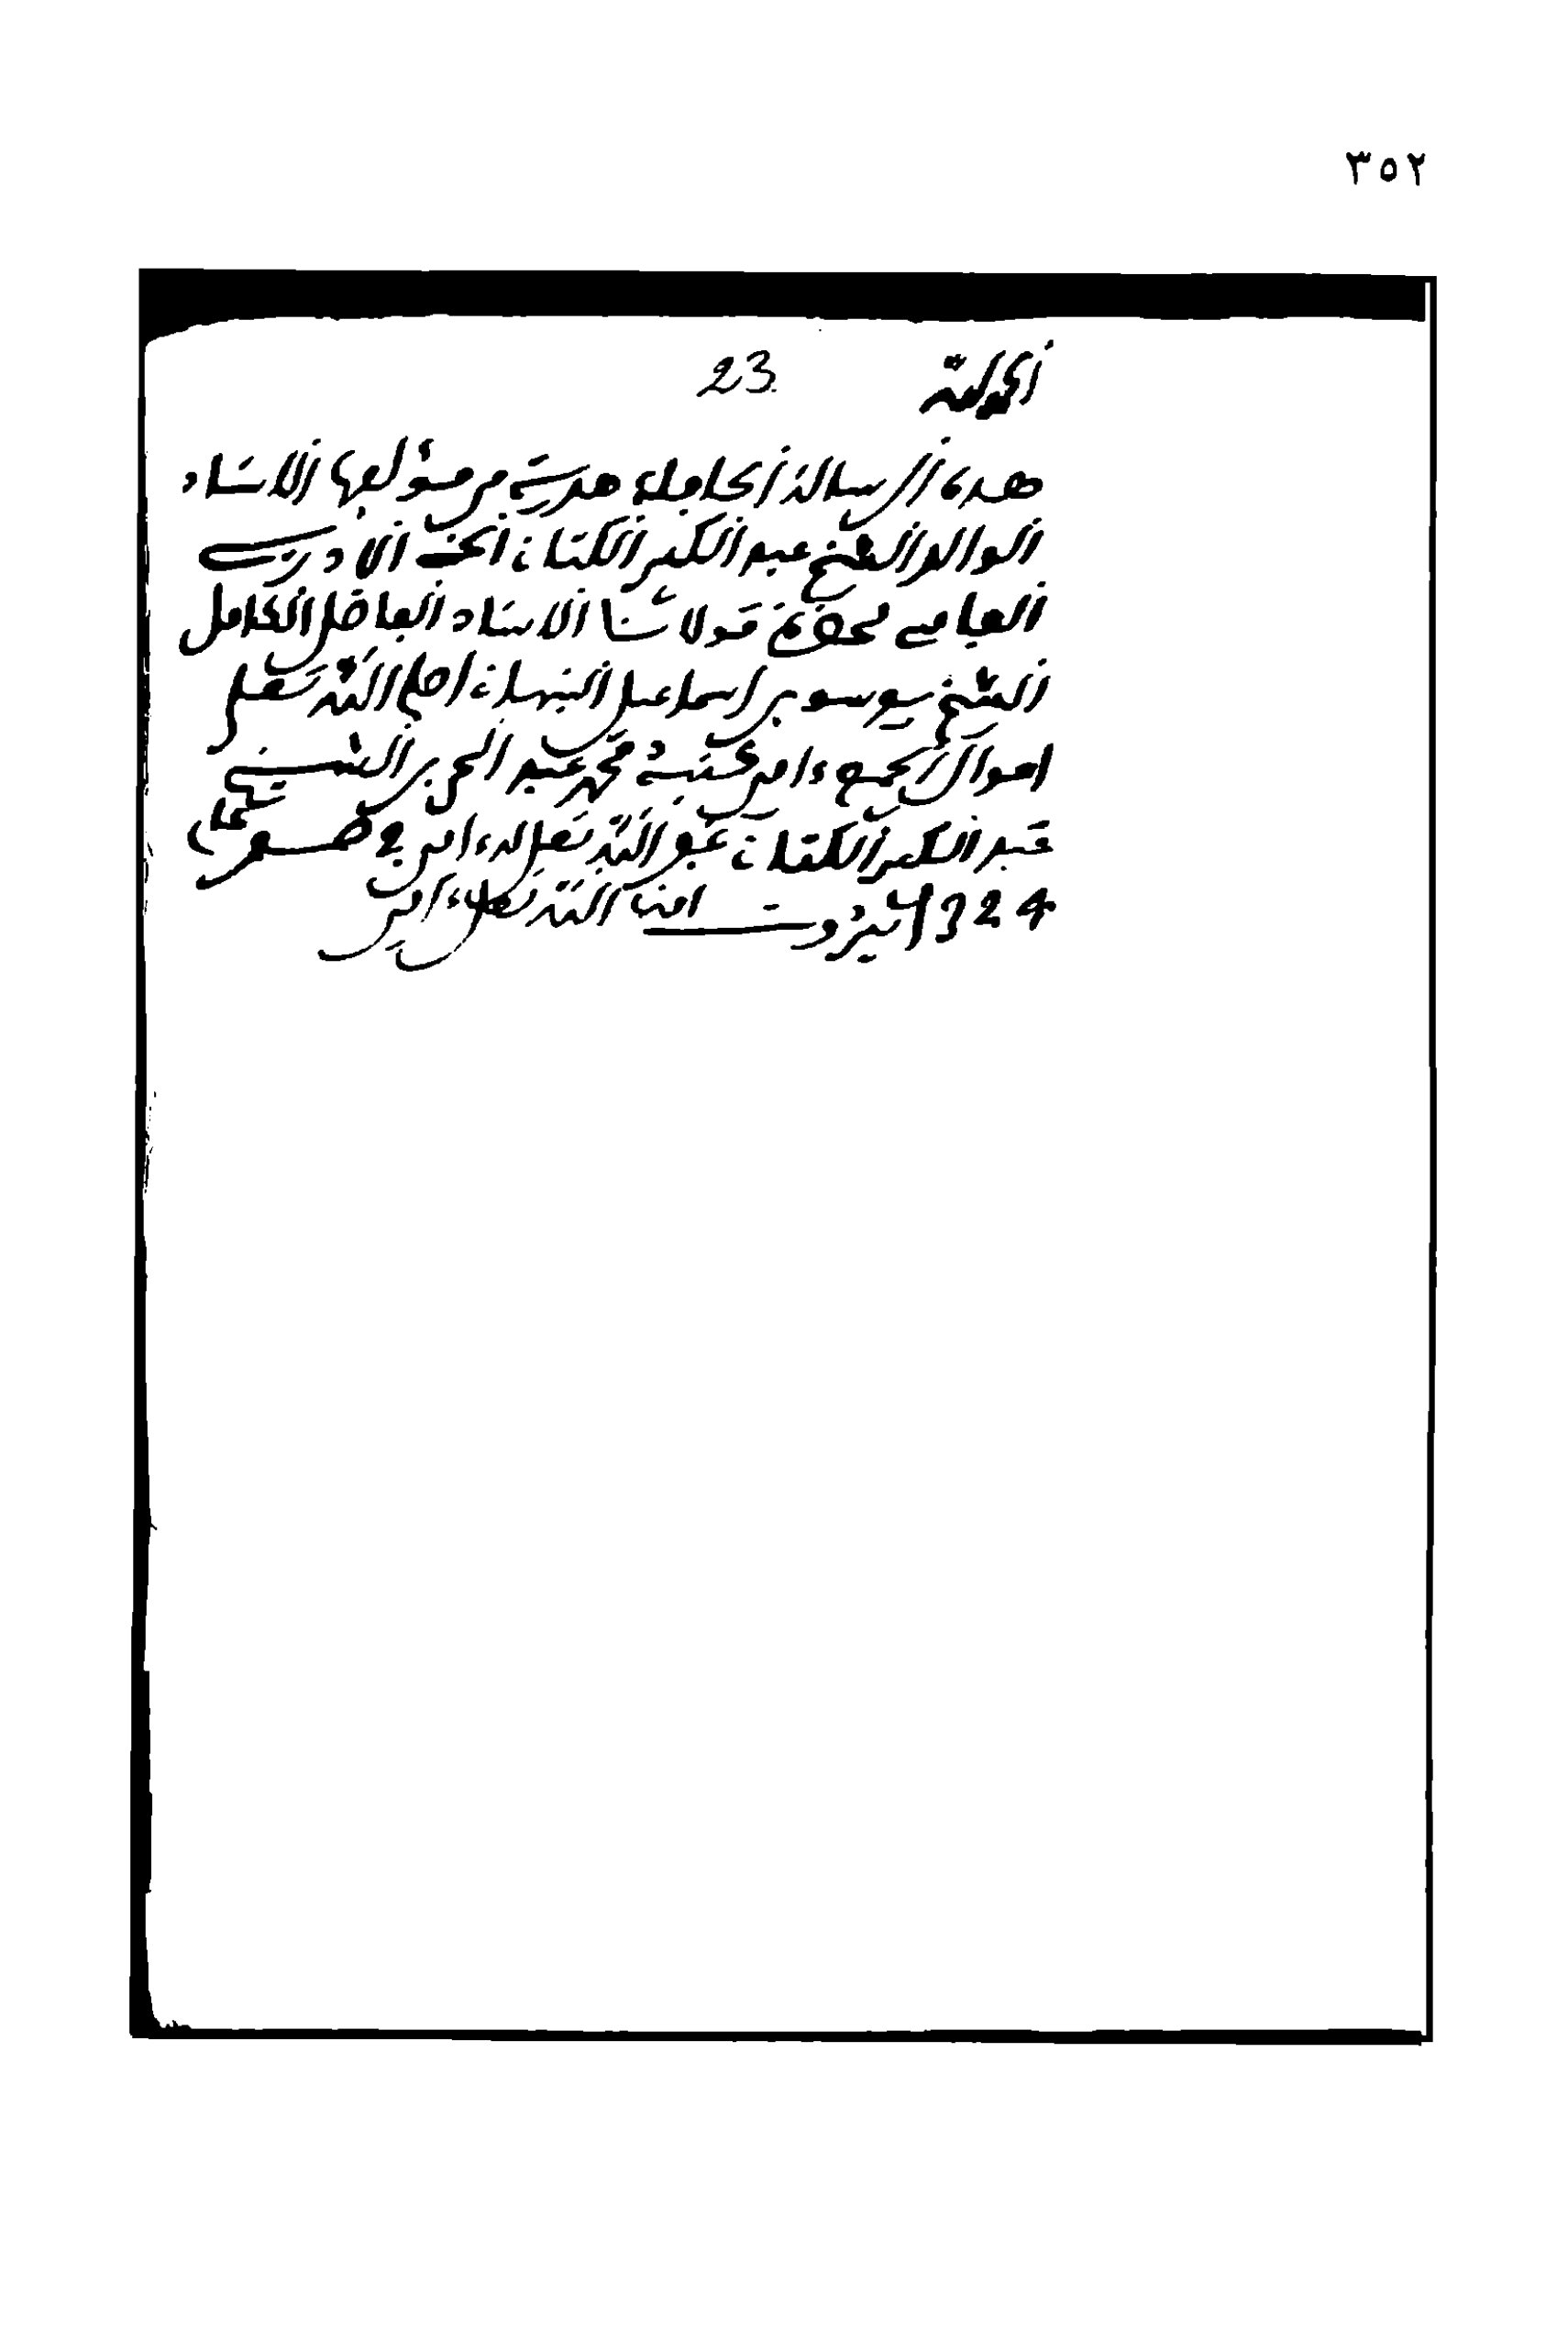 ٣٥٢
الحمد لله 23
هذه الرسالة الحافلة هدية من مؤلفها الاستاذ
الوالد الشيخ عبد الكبير الكتاني الحسني الادريسي
الفاسي لحضرة مولانا الاستاذ الفاضل الكامل
الشيخ يوسف بن اسماعيل النبهاني اصلح الله تعلى
احوال الجميع ءامين كتبه محمد عبد الحي بن الشيخ
عبد الكبير الكتاني عفى الله تعلى له ءامين في صفر عام
1324 بيروت امنها الله تعلى ءامين